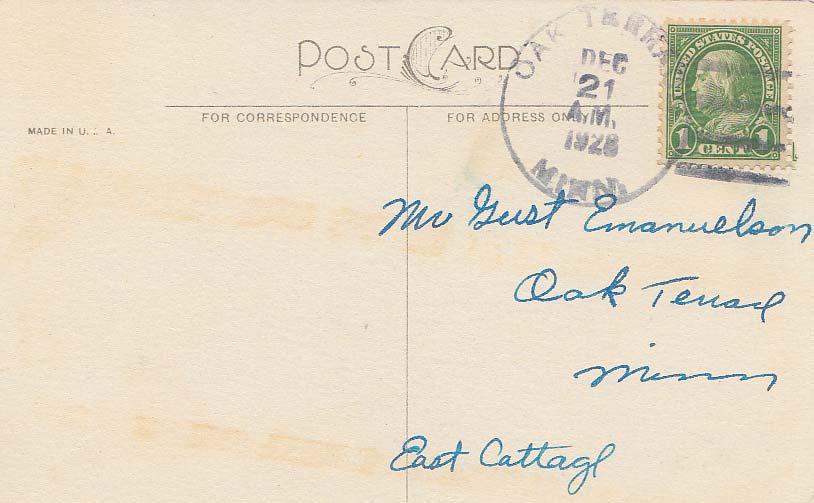 POST CARD
OAK TERRA
DEC
21
A.M.
1928
MINN.
UNITED STATES POSTAGE
1 CENT 1
FOR CORRESPONDENCE
FOR ADDRESS ONLY
MADE IN U.S.A.
Mr Gust Emanuelson
Oak Terrace
Minn
East Cottage